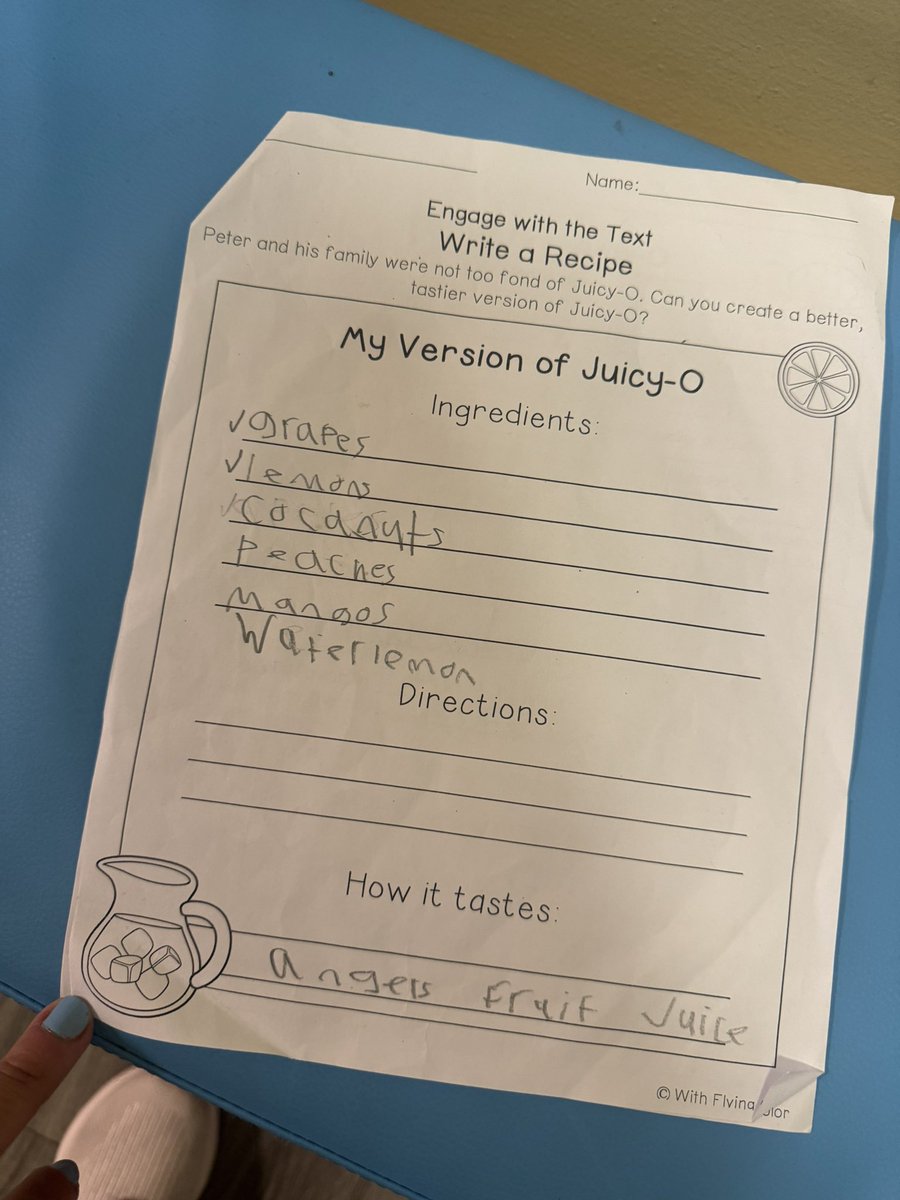 Name:
Engage with the Text
Write a Recipe
Peter and his family were not too fond of Juicy-O. Can you create a better,
tastier version of Juicy-O?
My Version of Juicy-O
Ingredients:
✓grapes
✓lemons
✓Cocanuts
Peaches
Mangos
Waterlemon
Directions:
How it tastes:
angels Fruit Juice
© With Flying Color